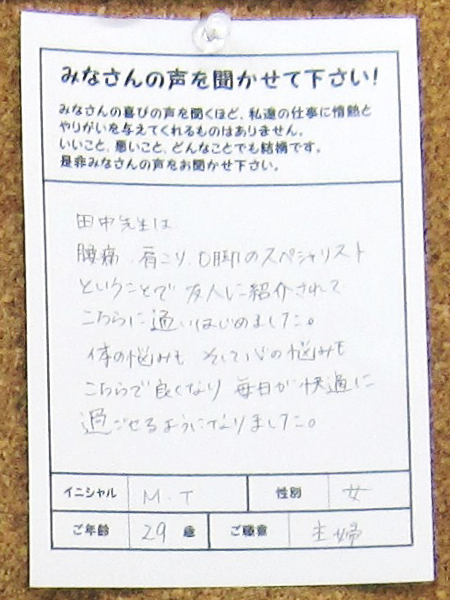 みなさんの声を聞かせて下さい!
みなさんの喜びの声を聞くほど、私達の仕事に情熱と
やりがいを与えてくれるものはありません。
いいこと、悪いこと、どんなことでも結構です。
是非みなさんの声をお聞かせ下さい。
田中先生は
腰痛、肩こり、O脚のスペシャリスト
ということで 友人に紹介されて
こちらに通いはじめました。
体の悩みも そして心の悩みも
こちらで良くなり 毎日が快適に
過ごせるようになりました。
イニシャル M.T 性別 女
ご年齢 29 歳 ご職業 主婦